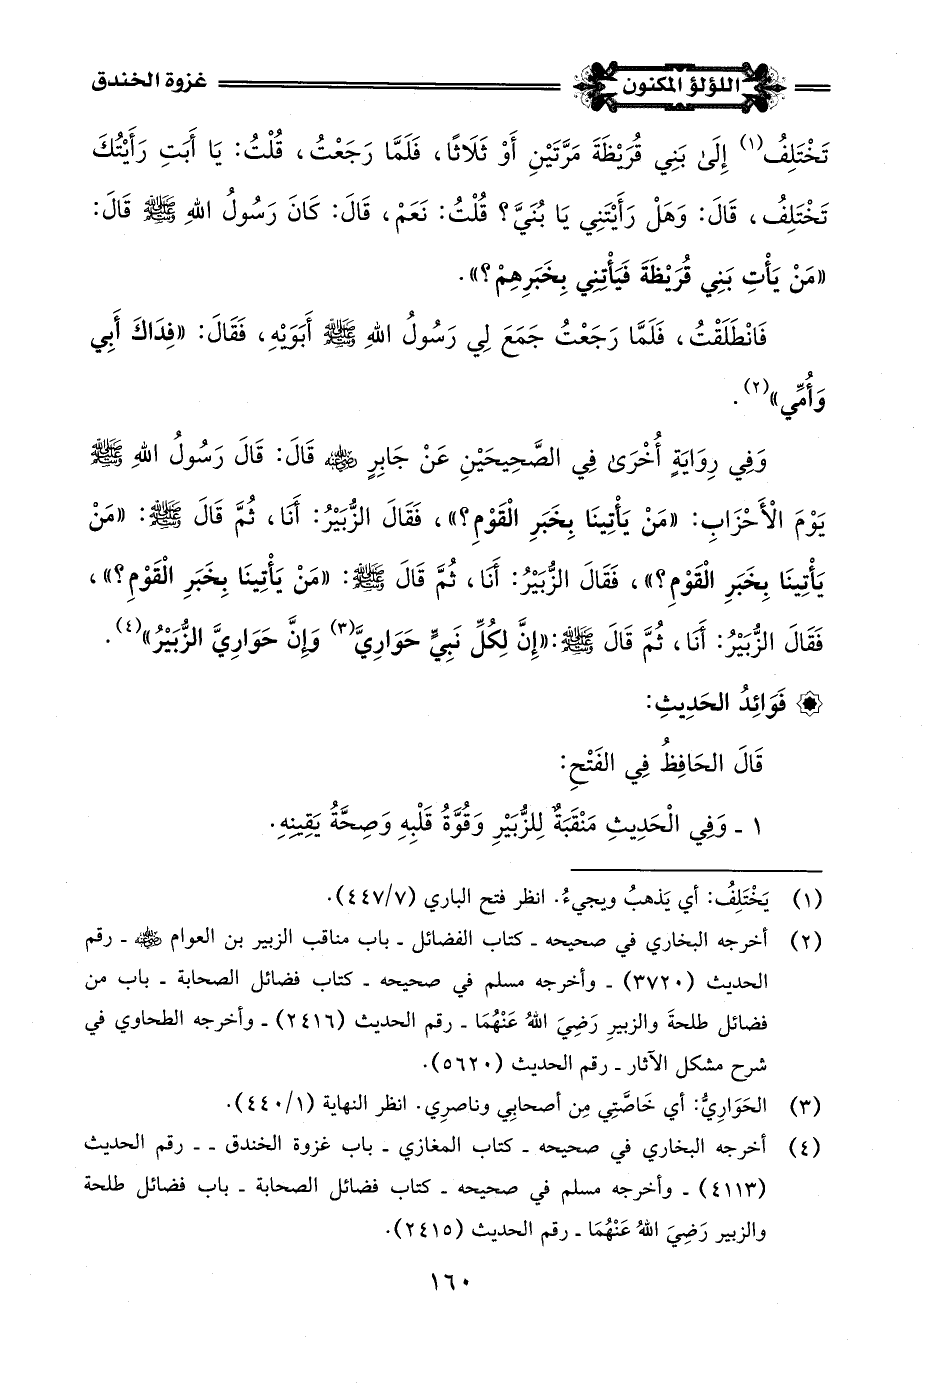 اللؤلؤ المكنون
غزوة الخندق
تَخْتَلِفُ(١) إِلَىٰ بَنِي قُرَيْظَةَ مَرَّتَيْنِ أَوْ ثَلَاثًا، فَلَمَّا رَجَعْتُ، قُلْتُ: يَا أَبَتِ رَأَيْتُكَ
تَخْتَلِفُ، قَالَ: وَهَلْ رَأَيْتَنِي يَا بُنَيَّ؟ قُلْتُ: نَعَمْ، قَالَ: كَانَ رَسُولُ اللهِ ﷺ قَالَ:
«مَنْ يَأْتِ بَنِي قُرَيْظَةَ فَيَأْتِنِي بِخَبَرِهِمْ؟».
فَانْطَلَقْتُ، فَلَمَّا رَجَعْتُ جَمَعَ لِي رَسُولُ اللهِ ﷺ أَبَوَيْهِ، فَقَالَ: «فِدَاكَ أَبِي
وَأُمِّي»(٢).
وَفِي رِوَايَةٍ أُخْرَىٰ فِي الصَّحِيحَيْنِ عَنْ جَابِرٍ رضي الله عنه قَالَ: قَالَ رَسُولُ اللهِ ﷺ
يَوْمَ الْأَحْزَابِ: «مَنْ يَأْتِينَا بِخَبَرِ الْقَوْمِ؟»، فَقَالَ الزُّبَيْرُ: أَنَا، ثُمَّ قَالَ ﷺ: «مَنْ
يَأْتِينَا بِخَبَرِ الْقَوْمِ؟»، فَقَالَ الزُّبَيْرُ: أَنَا، ثُمَّ قَالَ ﷺ: «مَنْ يَأْتِينَا بِخَبَرِ الْقَوْمِ؟»،
فَقَالَ الزُّبَيْرُ: أَنَا، ثُمَّ قَالَ ﷺ: «إِنَّ لِكُلِّ نَبِيٍّ حَوَارِيَّ(٣) وَإِنَّ حَوَارِيَّ الزُّبَيْرُ»(٤).
فَوَائِدُ الحَدِيثِ:
قَالَ الحَافِظُ فِي الفَتْحِ:
١ - وَفِي الْحَدِيثِ مَنْقَبَةٌ لِلزُّبَيْرِ وَقُوَّةُ قَلْبِهِ وَصِحَّةُ يَقِينِهِ.
(١) يَخْتَلِفُ: أي يَذهبُ ويجيءُ. انظر فتح الباري (٤٤٧/٧).
(٢) أخرجه البخاري في صحيحه - كتاب الفضائل - باب مناقب الزبير بن العوام رضي الله عنه - رقم
الحديث (٣٧٢٠) - وأخرجه مسلم في صحيحه - كتاب فضائل الصحابة - باب من
فضائل طلحةَ والزبيرِ رَضِيَ اللهُ عَنْهُمَا - رقم الحديث (٢٤١٦) - وأخرجه الطحاوي في
شرح مشكل الآثار - رقم الحديث (٥٦٢٠).
(٣) الحَوَارِيُّ: أي خَاصَّتِي مِن أصحابِي وناصرِي. انظر النهاية (٤٤٠/١).
(٤) أخرجه البخاري في صحيحه - كتاب المغازي - باب غزوة الخندق - - رقم الحديث
(٤١١٣) - وأخرجه مسلم في صحيحه - كتاب فضائل الصحابة - باب فضائل طلحة
والزبير رَضِيَ اللهُ عَنْهُمَا - رقم الحديث (٢٤١٥).
١٦٠